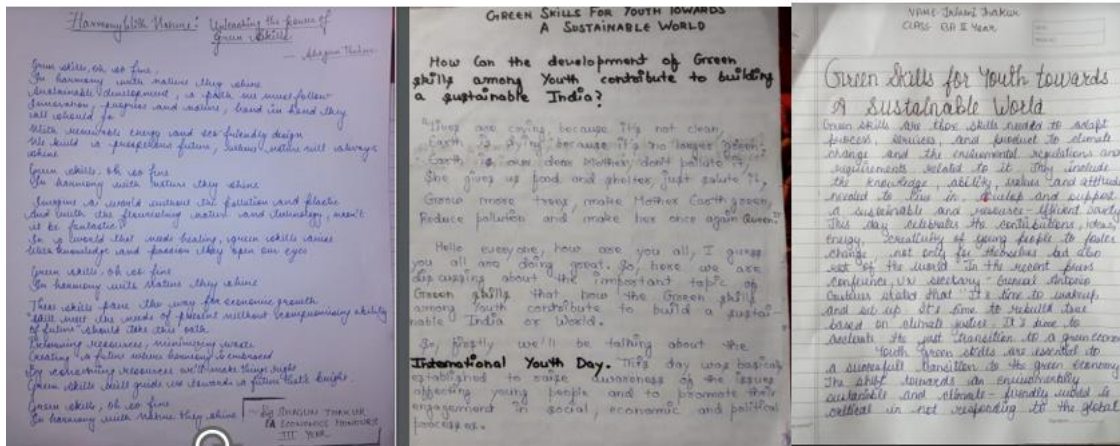 "Harmony With Nature: Unleashing the power of
Green Skills"
- Shagun Thakur
Green skills, oh so fine,
In harmony with nature they shine
Sustainable development, a path we must follow
Innovation, progress and nature, hand in hand they
all should go
With renewable energy and eco friendly design
We build a prosperous future, where nature will always
shine
Green skills, oh so fine
In harmony with nature they shine
Imagine a world without the pollution and plastic
And with the flourishing nature and technology, won't
it be fantastic
In a world that needs healing, green skills arise
With knowledge and passion they open our eyes
Green skills, oh so fine
In harmony with nature they shine
These skills pave the way for economic growth
"Will meet the needs of present without compromising ability
of future" should take this oath
Renewing resources, minimizing waste
Creating a future where harmony is embraced
By conserving resources we'll make things right
Green skills will guide us towards a future that's bright.
Green skills, oh so fine
In harmony with nature they shine
~ By SHAGUN THAKUR
BA ECONOMICS HONOURS
III YEAR
GREEN SKILLS FOR YOUTH TOWARDS
A SUSTAINABLE WORLD
How Can the development of Green
skills among Youth contribute to building
a sustainable India?
are crying, because it's not clean,
Earth is dying, because it's no longer green.
Earth is our dear Mother, don't pollute it,
She gives us food and shelter, just salute it,
Grow more trees, make Mother Earth green,
Reduce pollution and make her once again Queen."
Hello everyone, how are you all, I guess
you all are doing great. So, here we are
discussing about the important topic of
Green skills that how the Green skills
among Youth contribute to build a sustai-
nable India or World.
So, firstly we'll be talking about the
International Youth Day. This day was basically
established to raise awareness of the issues
affecting young people and to promote their
engagement in social, economic and political
processes.
NAME- Thakur
CLASS- BA II Year
Green Skills for Youth towards
A Sustainable World
Green skills are those skills needed to adapt
process, services, and product to climate
change and the environmental regulations and
requirements related to it. They include
the knowledge, ability, values and attitude
needed to live in, develop and support
a sustainable and resource-efficient
This day celebrates the contributions, ideas,
energy, creativity of young people to foster
change not only for themselves but also
rest of the world. In the recent press
confrence, UN secretary-General Antonio
Guterres stated that It's time to wakeup
and set up. It's time to rebuild trust
based on climate justice. It's time to
the just transition to a green economy
Youth Green skills are essential to
a successfull transition to the green economy.
The shift towards an environmentally
sustainable and climate-friendly world is
critical in not responding to the global